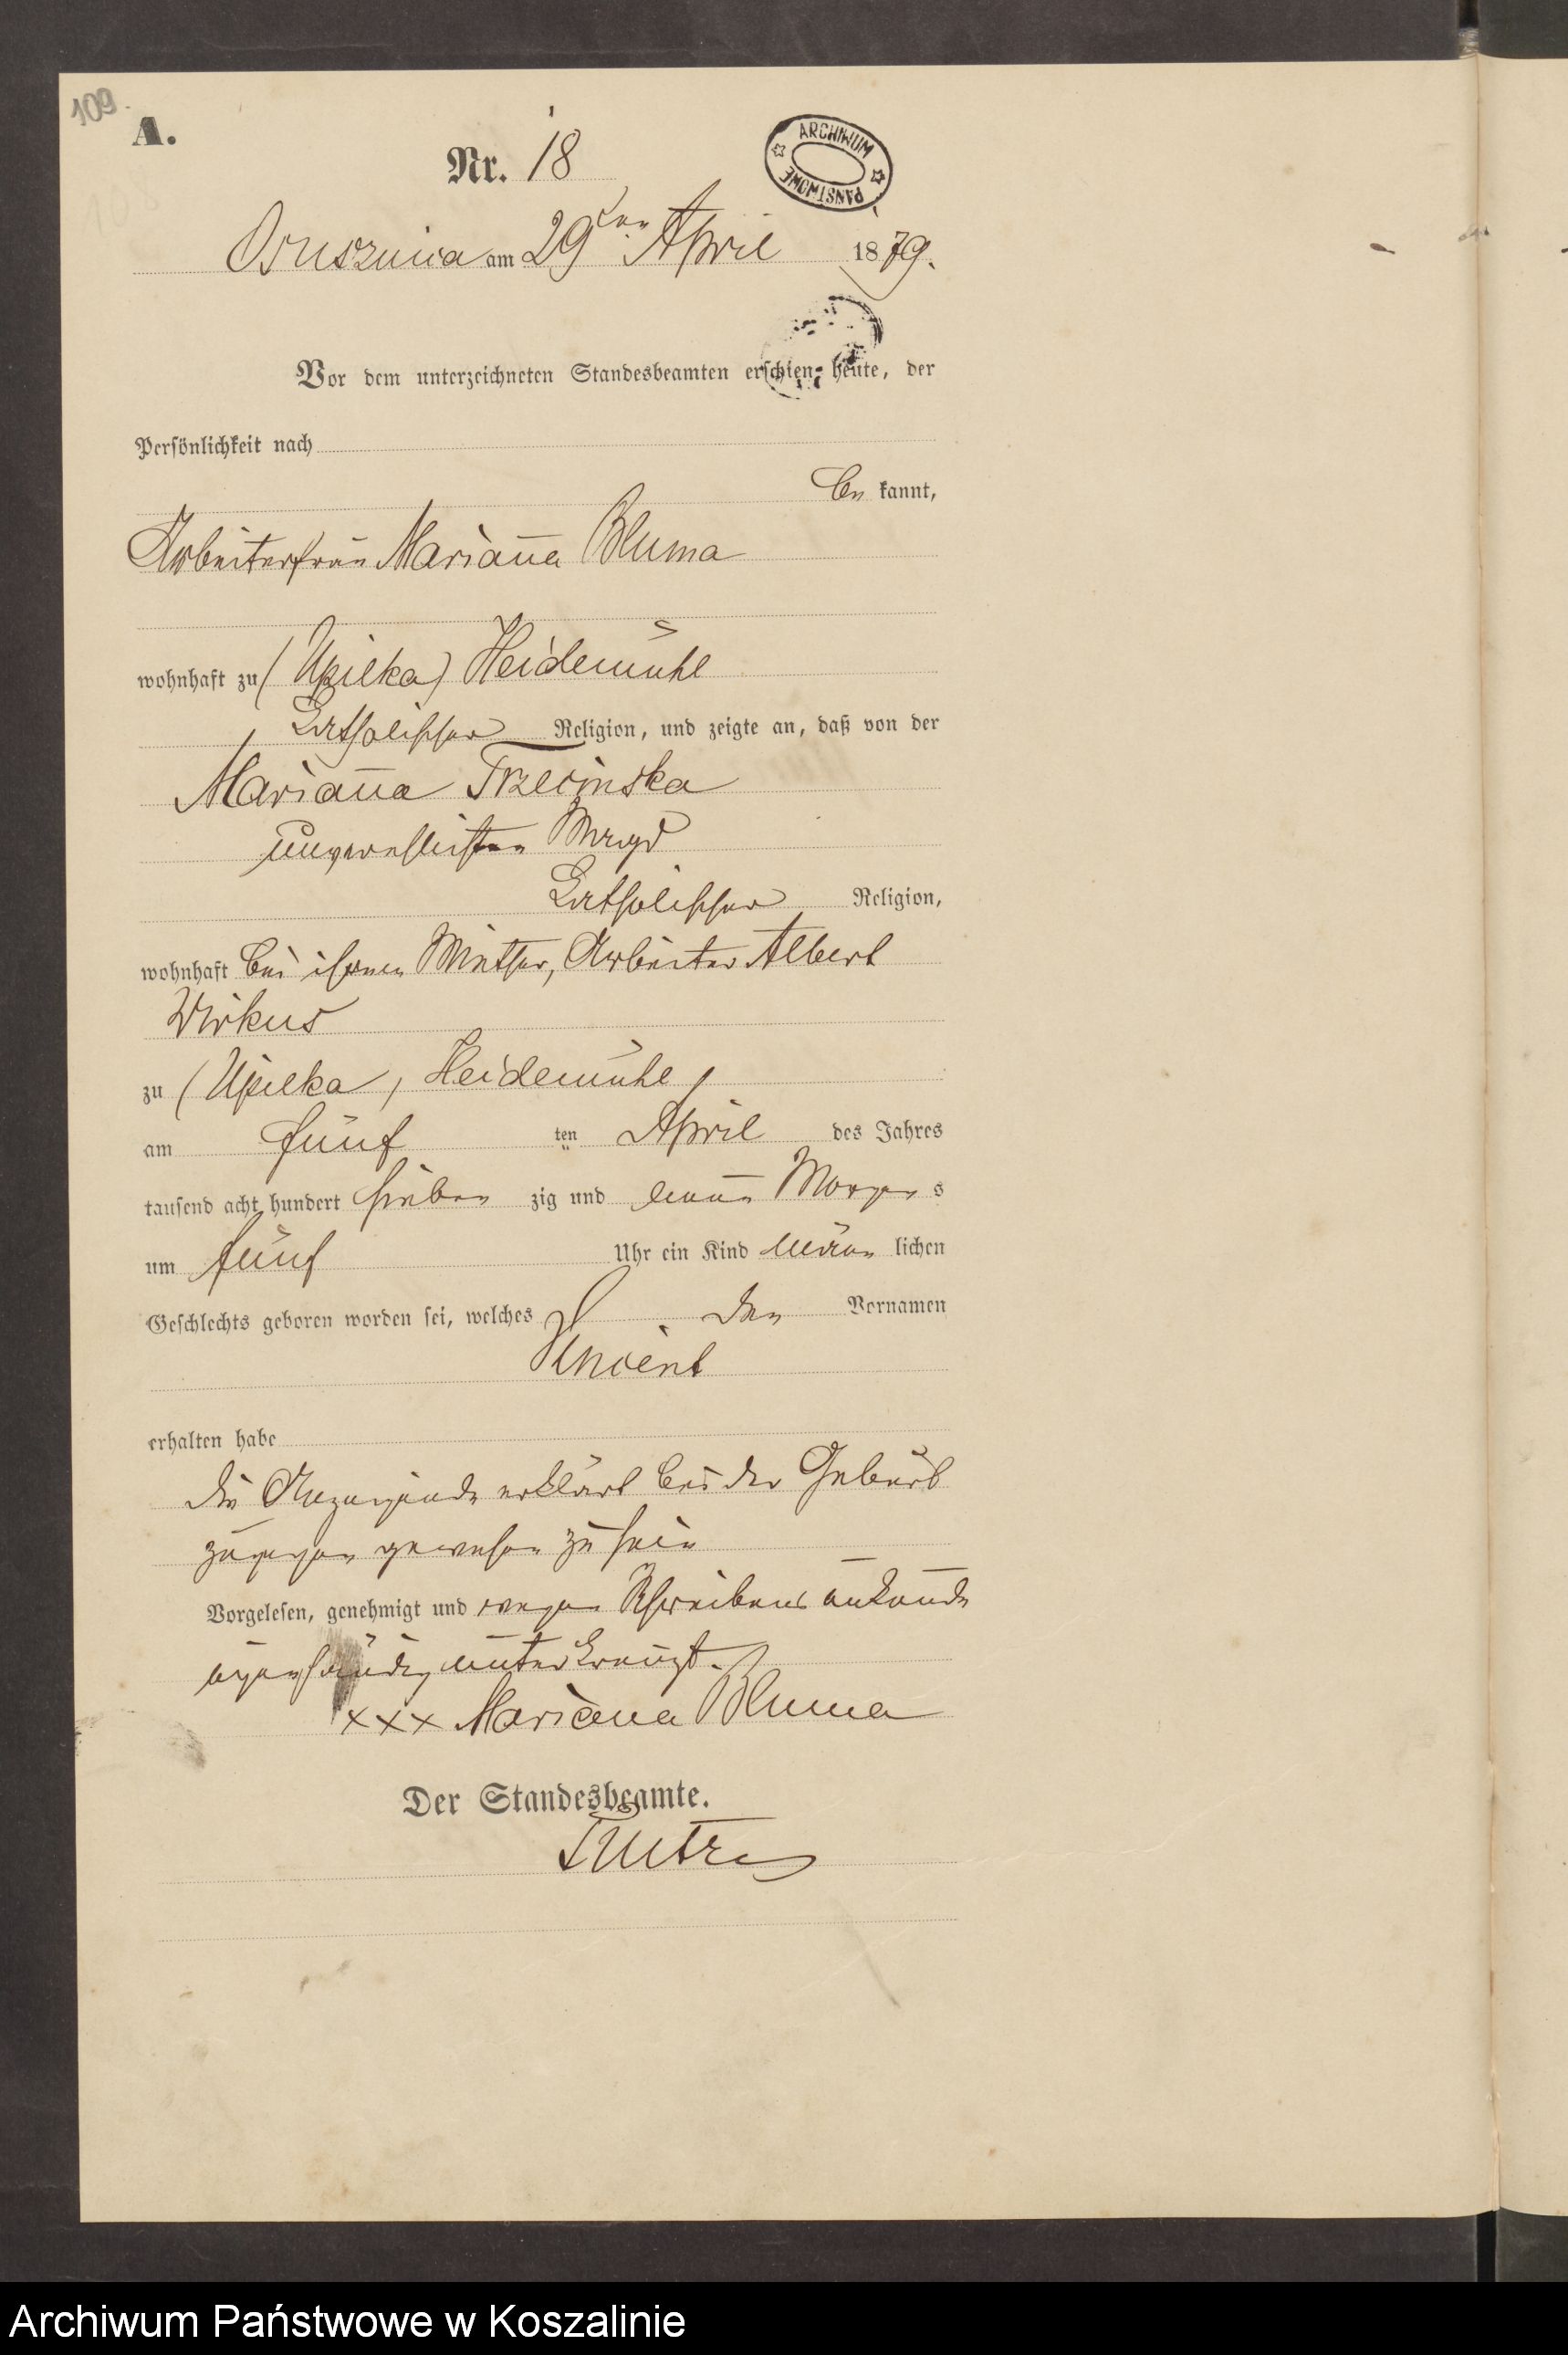 109.
A.
Nr. 18
ARCHIWUM PAŃSTWOWE
am 29ten April 1879.
Vor dem unterzeichneten Standesbeamten erschien heute, der
Persönlichkeit nach
be kannt,
Arbeiterfrau Marian̄a Bluma
wohnhaft zu (Upilka) Heidemühl
katholischer Religion, und zeigte an, daß von der
Marian̄a Trzecinska
unverehelichten Magd
katholischer Religion,
wohnhaft bei ihrem Miether, Arbeiter Albert
Wirkus
zu (Upilka) Heidemühl
am fünf ten April des Jahres
tausend acht hundert sieben zig und neun Morgens
um fünf Uhr ein Kind män̄ lichen
Geschlechts geboren worden sei, welches den Vornamen
Vincent
erhalten habe
die Anzeigende erklärt bei der Geburt
zugegen gewesen zu sein
Vorgelesen, genehmigt und wegen Schreibens unkunde
eigenhändig unterkreuzt.
xxx Mariana Bluma
Der Standesbeamte.
Archiwum Państwowe w Koszalinie